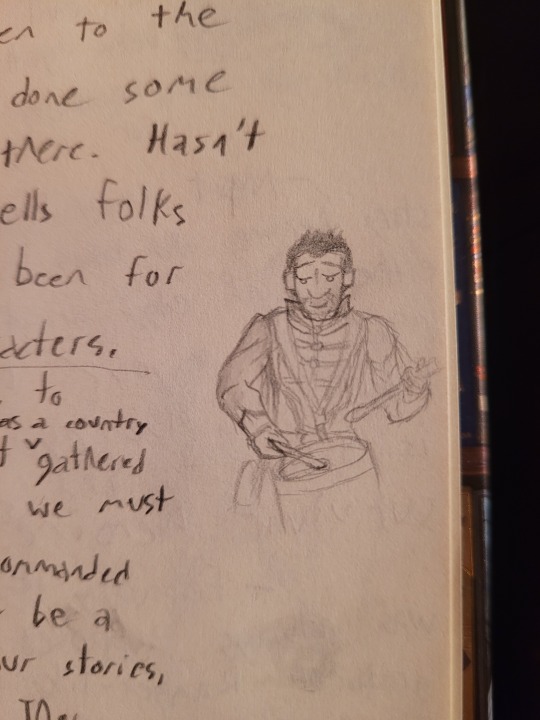 en to the
done some
there. Hasn't
ells folks
been for
acters.
to
as a country
t gathered
we must
ommanded
be a
ur stories,